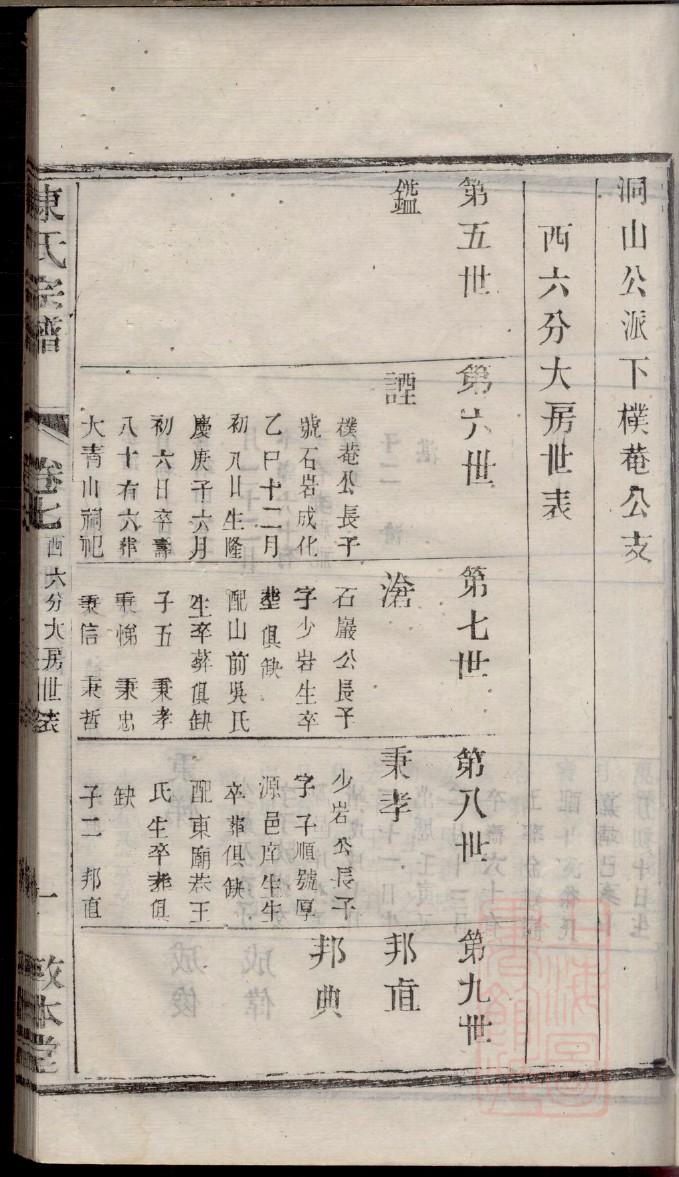 洞山公派下樸菴公支
西六分大房世表
第五世
鑑
第六世
諲
樸菴公長子
號石岩成化
乙巳十二月
初八日生隆
慶庚子六月
初六日卒壽
八十有六葬
大青山祠祀
第七世
滄
石巖公長子
字少岩生卒
塟俱缺
配山前吳氏
生卒葬俱缺
子五 秉孝
秉悌 秉忠
秉信 秉哲
第八世
秉孝
少岩公長子
字子順號厚
源邑庠生生
卒葬俱缺
配東廟巷王
氏生卒葬俱
缺
子二 邦直
第九世
邦直
邦典
陳氏宗譜
卷七
西六分大房世表
一
敦本堂